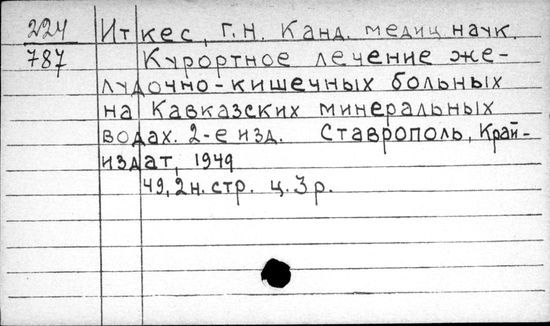 224 Иткес, Г.Н. Канд. медиц наук.
787 Курортное лечение же-
лудочно-кишечных больных
на Кавказских минеральных
водах. 2-е изд. Ставрополь, Край-
издат, 1949
49, 2н. стр. ц. 3 р.